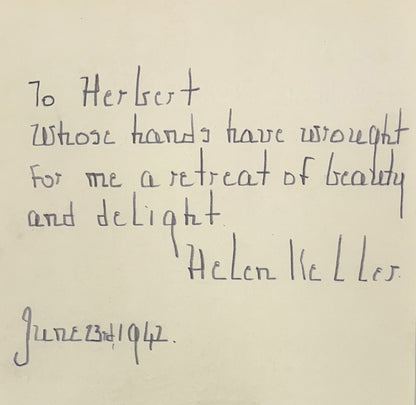 To Herbert
Whose hands have wrought
For me a retreat of beauty
and delight.
Helen Keller.
June 23rd, 1942.